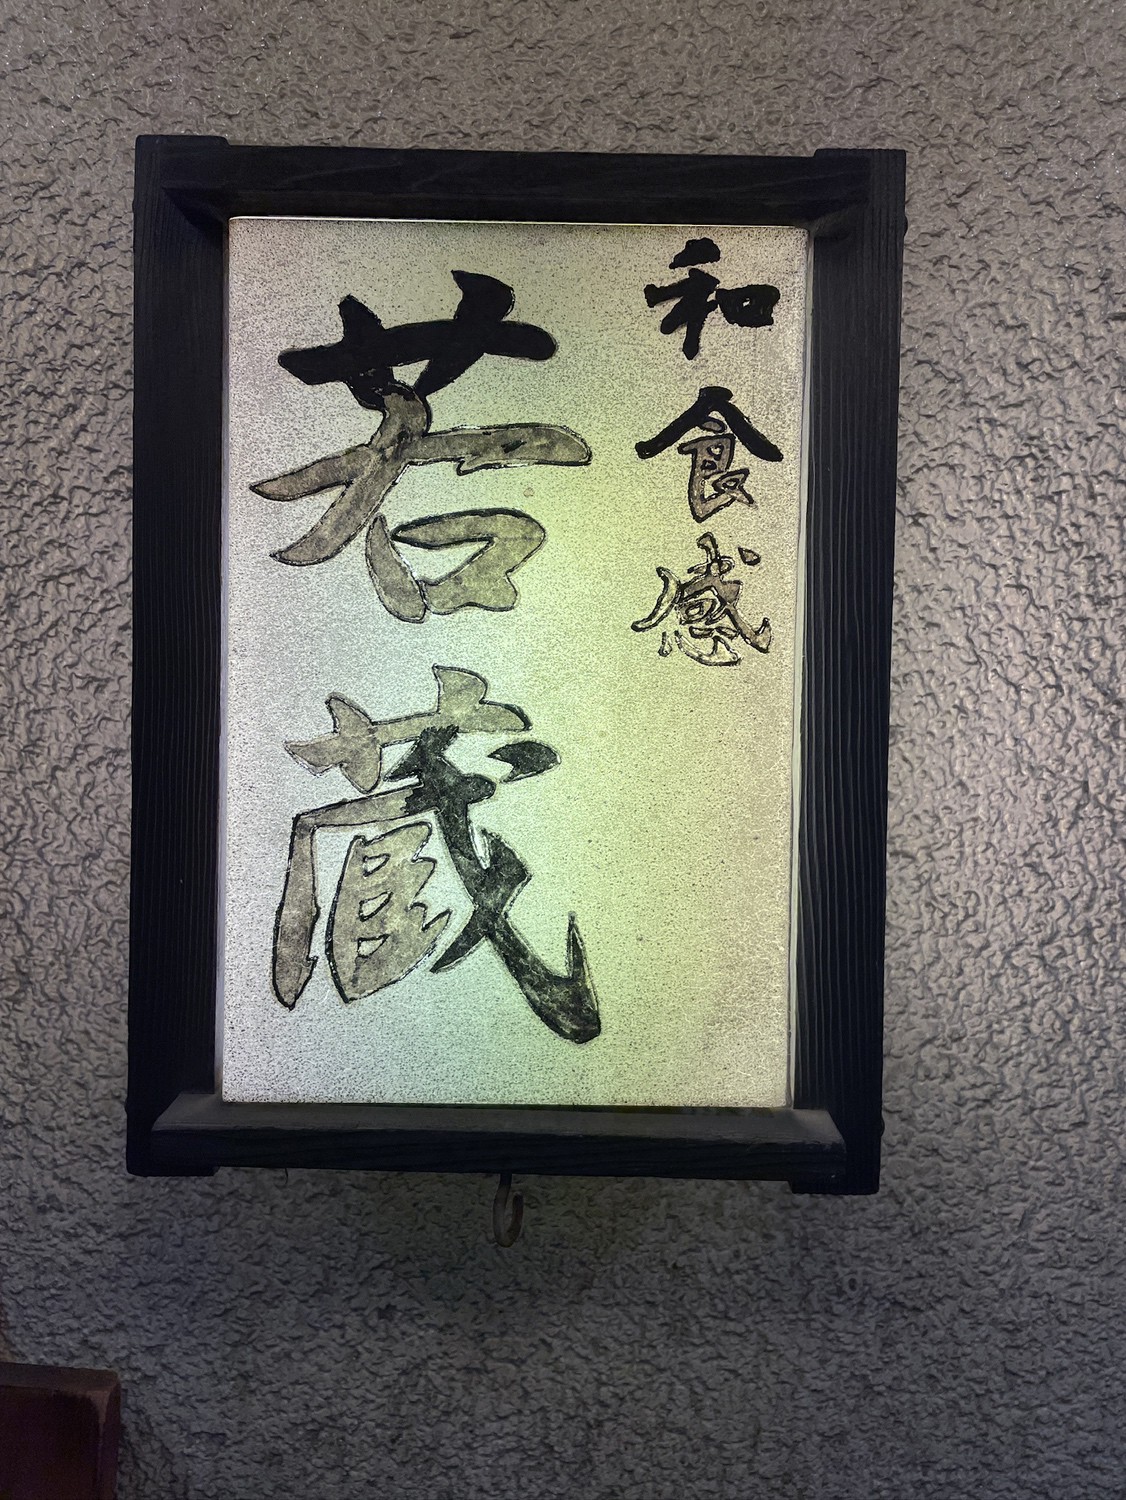 和食感
若蔵